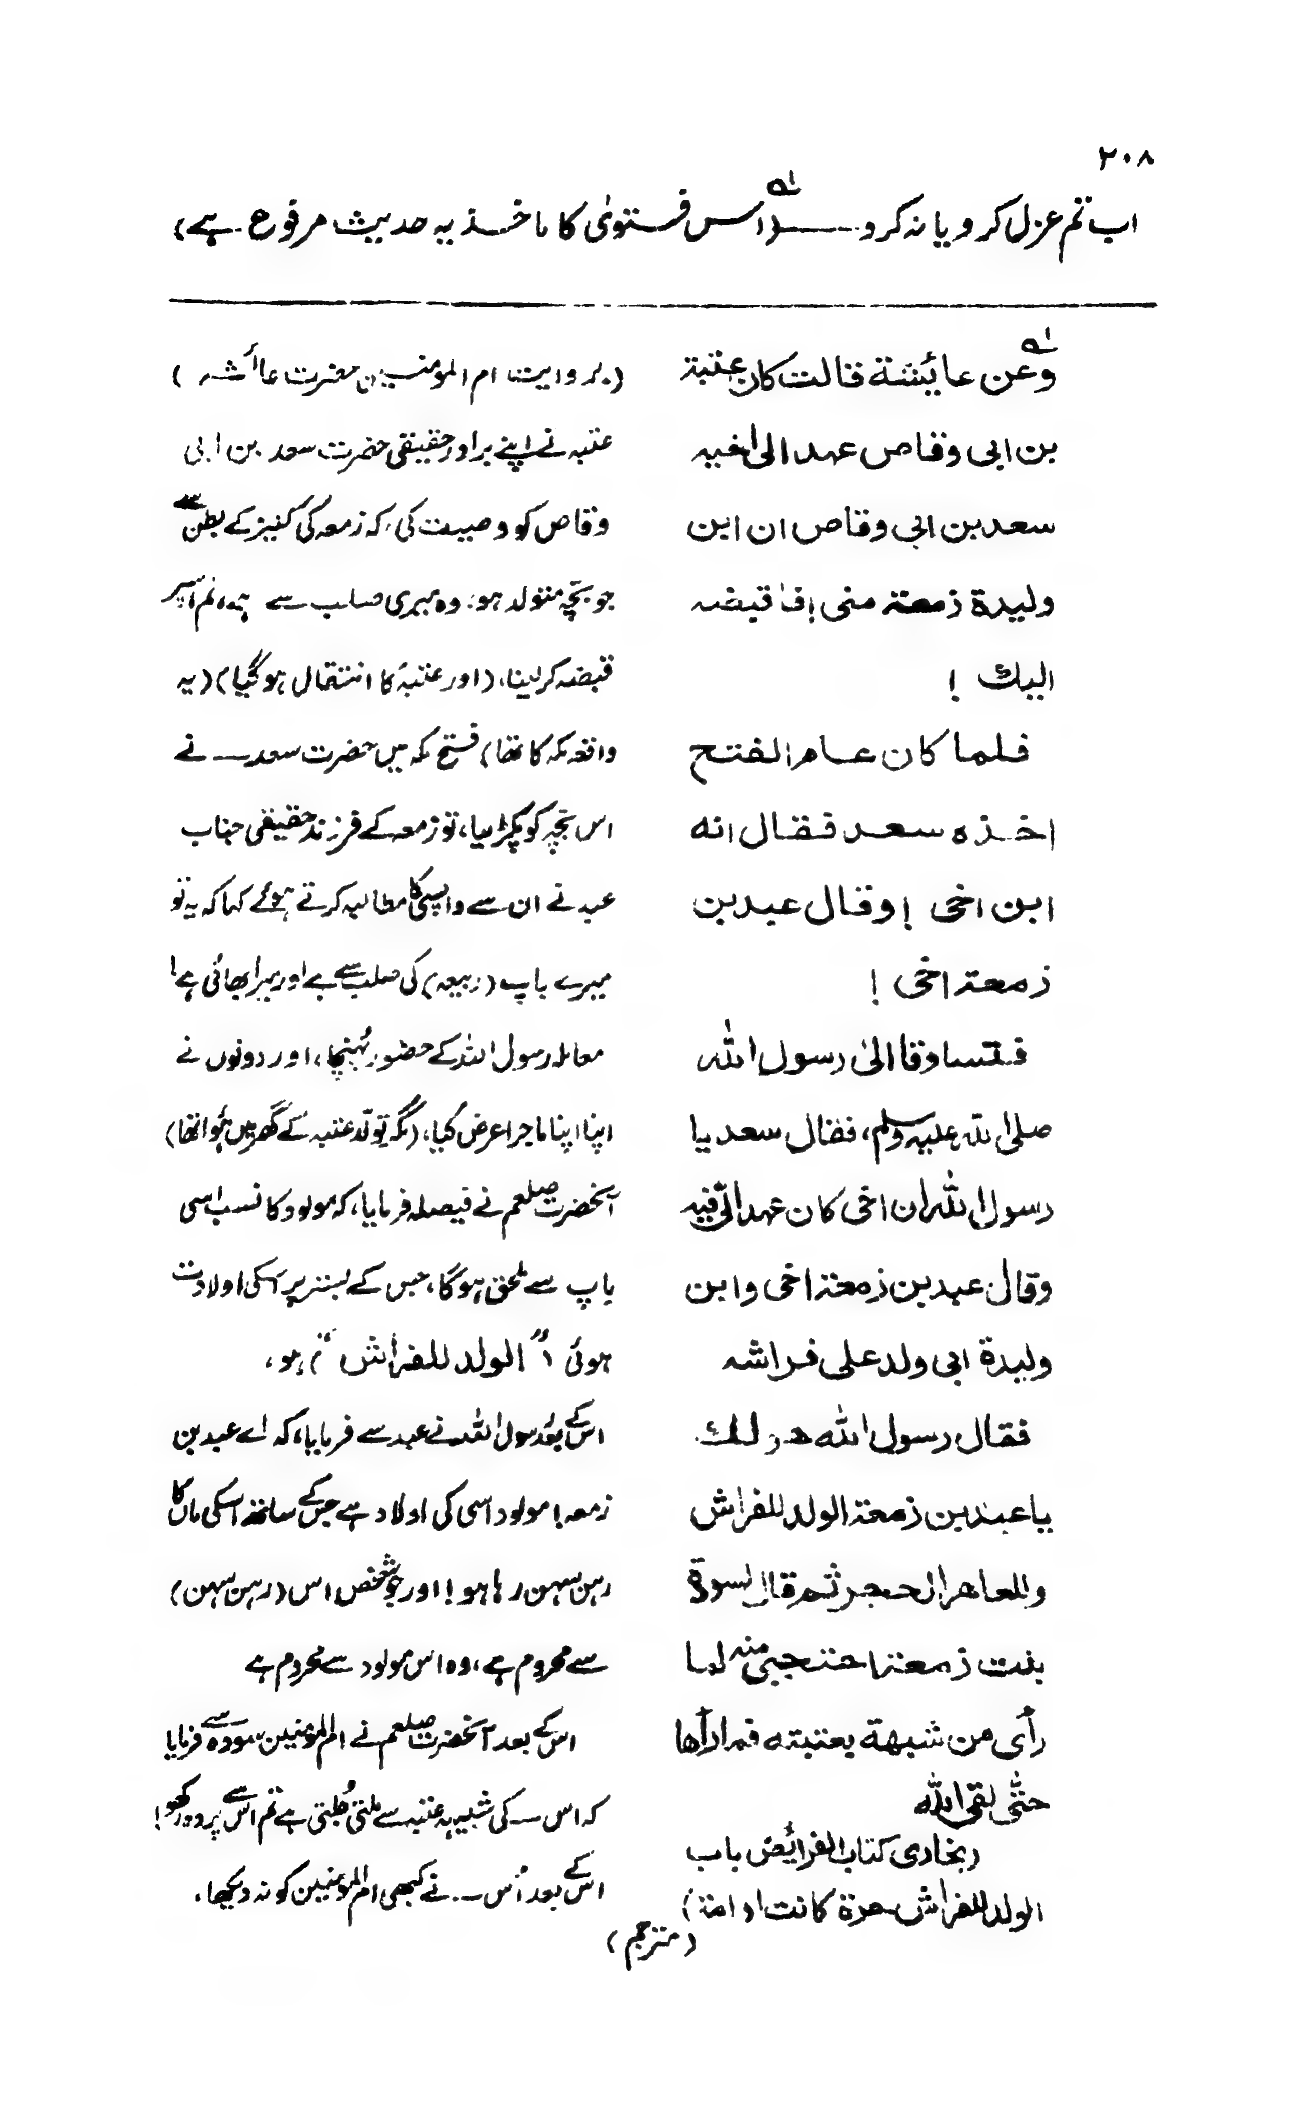 ۲۰۸
اب تم عزل کرو یا نہ کرو ــــ (اس فتویٰ کا ماخذ یہ حدیث مرفوع ہے)
لہ
وعن عائشۃ قالت کان عتبۃ
بن ابی وقاص عھد الی اخیہ
سعد بن ابی وقاص ان ابن
ولیدۃ زمعۃ منی! فاقبضہ
الیک !
فلما کان عام الفتح
اخذہ سعد فقال انہ
ابن اخی ! وقال عبد بن
زمعۃ اخی !
فتساوقا الیٰ رسول اللہ
صلی اللہ علیہ وسلم، فقال سعد یا
رسول اللہ ان اخی کان عہد الیّ فیہ
وقال عبد بن زمعۃ اخی وابن
ولیدۃ ابی ولد علی فراشہ
فقال رسول اللہ ھو لک
یا عبد بن زمعۃ الولد للفراش
وللعاھر الحجر ثم قال لسودۃ
بنت زمعۃ احتجبی منہ لما
رأی من شبھۃ بعتبتہ فما رآھا
حتّٰی لقی اللہ
(بخاری کتاب الفرائض باب
الولد للفراش حرۃ کانت او امۃ)
(بروایت ام المومنین حضرت عائشہ)
عتبہ نے اپنے برادر حقیقی حضرت سعد بن ابی
وقاص کو وصیت کی، کہ زمعہ کی کنیز کے بطن سے
جو بچہ متولد ہو، وہ میری صلب سے ہے، تم اسپر
قبضہ کر لینا، (اور عتبہ کا انتقال ہو گیا) (یہ
واقعہ مکہ کا تھا) فتح مکہ میں حضرت سعد ــ نے
اس بچہ کو پکڑ لیا، تو زمعہ کے فرزند حقیقی جناب
عبد نے ان سے واپسی کا مطالبہ کرتے ہوئے کہا کہ یہ تو
میرے باپ (ربیعہ) کی صلب سے ہے اور میرا بھائی ہے!
معاملہ رسول اللہ کے حضور پہنچا، اور دونوں نے
اپنا اپنا ماجرا عرض کیا، (مگر تولد عتبہ کے گھر میں ہوا تھا)
آنحضرت صلعم نے فیصلہ فرمایا، کہ مولود کا نسب اسی
باپ سے ملحق ہوگا، جس کے بستر پر اسکی اولادت
ہوئی "الولد للفراش" ہو،
اس کے بعد رسول اللہ نے عبد سے فرمایا، کہ اے عبد بن
زمعہ! مولود اسی کی اولاد ہے جس کے ساتھ اسکی ماں کا
رہن سہن رہا ہو! اور جو شخص اس (رہن سہن)
سے محروم ہے، وہ اس مولود سے محروم ہے
اس کے بعد آنحضرت صلعم نے ام المومنین سودہ سے فرمایا
کہ اس ــ کی شبیہ عتبہ سے ملتی جلتی ہے تم اس سے پردہ رکھو!
اس کے بعد اُس ــ نے کبھی ام المومنین کو نہ دیکھا،
(مترجم)